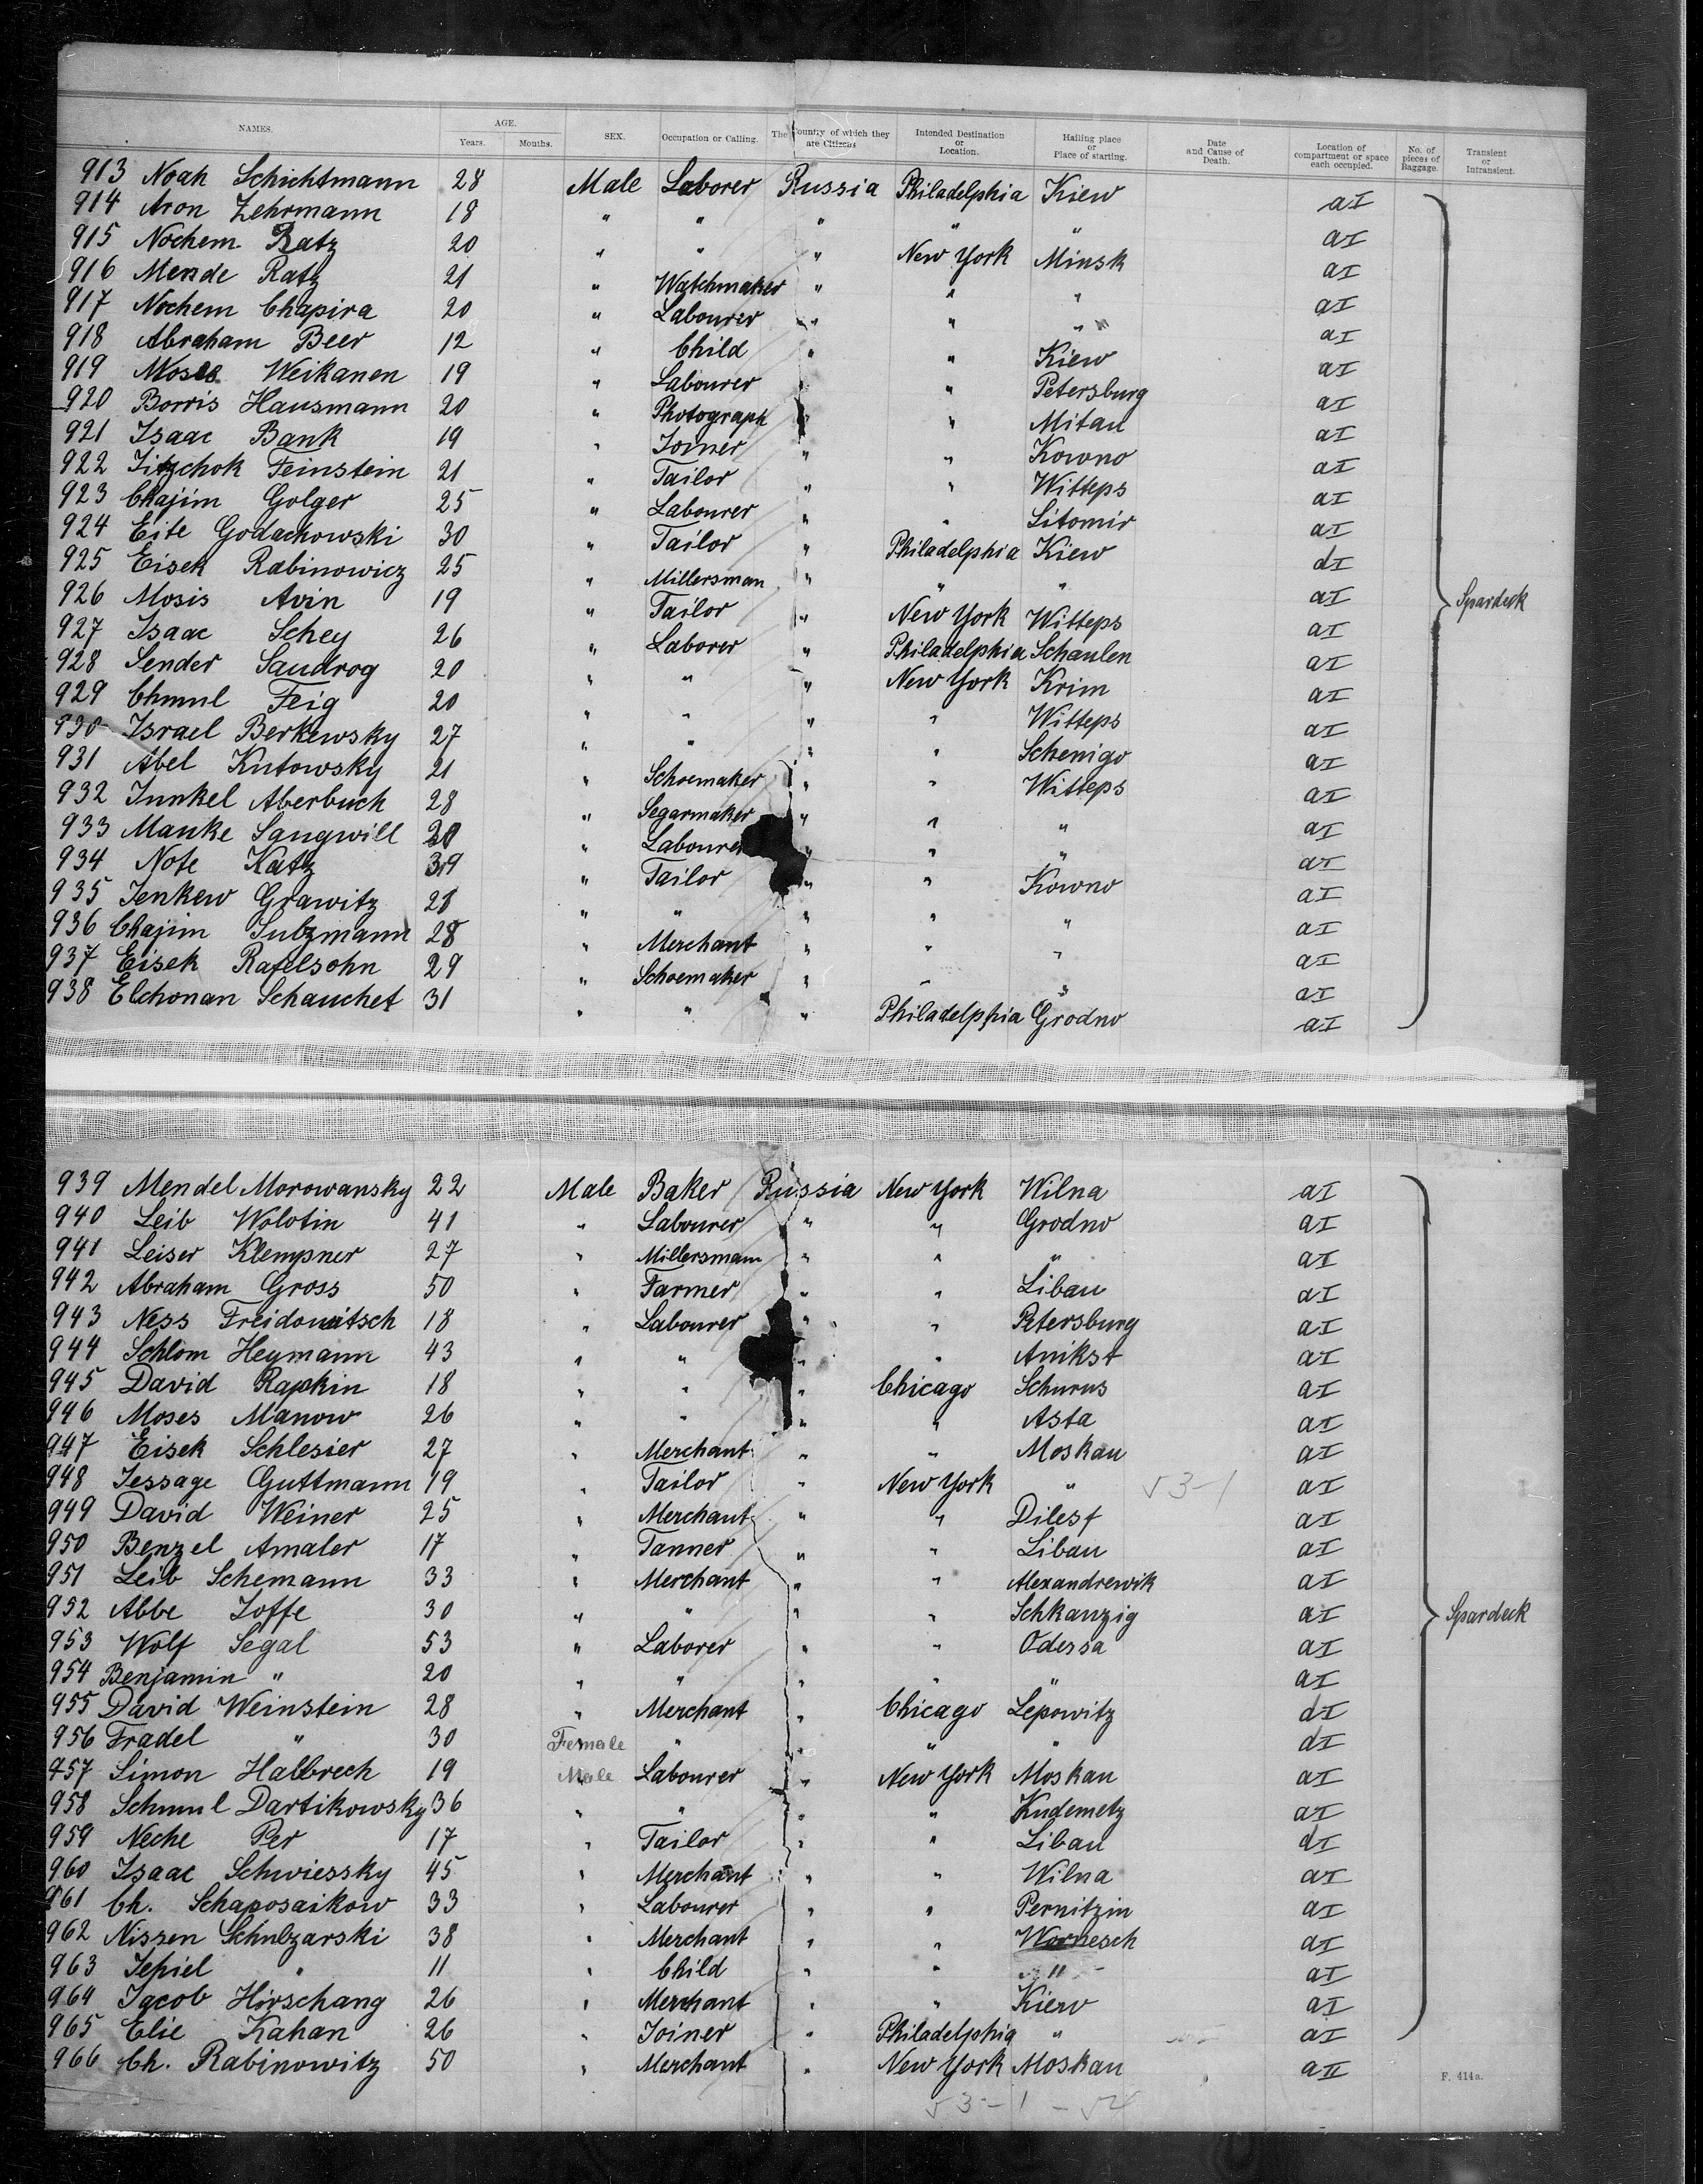 NAMES. AGE. Years. Months. SEX. Occupation or Calling. The Country of which they are Citizens Intended Destination or Location. Hailing place or Place of starting. Date and Cause of Death. Location of compartment or space each occupied. No. of pieces of Baggage. Transient or Intransient.
913 Noah Schichtmann 28 Male Laborer Russia Philadelphia Kiew aI
914 Aron Zehrmann 18 " " " " " aI
915 Nochem Ratz 20 " " " New York Minsk aI
916 Mende Ratz 21 " Watchmaker " " " aI
917 Nochem Chapira 20 " Labourer " " " aI
918 Abraham Beer 12 " Child " " Kiew aI
919 Moses Weikanen 19 " Labourer " " Petersburg aI
920 Borris Hausmann 20 " Photograph " " Mitau aI
921 Isaac Bank 19 " Joiner " " Kowno aI
922 Jitzchok Feinstein 21 " Tailor " " Witteps aI
923 Chajim Golger 25 " Labourer " " Sitomir aI
924 Eite Godackowski 30 " Tailor " Philadelphia Kiew dI
925 Eisek Rabinowicz 25 " Millersman " " " aI
926 Mosis Avin 19 " Tailor " New York Witteps aI
927 Isaac Schey 26 " Laborer " Philadelphia Schaulen aI
928 Sender Saudrog 20 " " " New York Krim aI
929 Chmul Feig 20 " " " " Witteps aI
930 Israel Berkewsky 27 " " " " Schenigo aI
931 Abel Kutowsky 21 " Schoemaker " " Witteps aI
932 Junkel Aberbuch 28 " Segarmaker " " " aI
933 Manke Sangwill " Labourer " " " aI
934 Note Katz 39 " Tailor " " Kowno aI
935 Jenkew Grawitz 28 " " " " " aI
936 Chajim Sulzmann 28 " Merchant " " " aI
937 Eisek Rafelsohn 29 " Schoemaker " " " aI
938 Elchonan Schauchet 31 " " " Philadelphia Grodno aI
Spardeck
939 Mendel Morowansky 22 Male Baker Russia New York Wilna aI
940 Leib Wolotin 41 " Labourer " " Grodno aI
941 Leiser Klempner 27 " Millersman " " " aI
942 Abraham Gross 50 " Farmer " " Libau aI
943 Ness Freidowitsch 18 " Labourer " " Petersburg aI
944 Schlom Heymann 43 " " " " Anikst aI
945 David Rapkin 18 " " " Chicago Schurus aI
946 Moses Manow 26 " " " " Asta aI
947 Eisek Schlesier 27 " Merchant " " Moskau aI
948 Jessage Guttmann 19 " Tailor " New York " 53-1 aI
949 David Weiner 25 " Merchant " " Dilest aI
950 Benzel Amaler 17 " Tanner " " Libau aI
951 Leib Schemann 33 " Merchant " " Alexandrewik aI
952 Abbe Joffe 30 " " " " Schkanzig aI
953 Wolf Segal 53 " Laborer " " Odessa aI
954 Benjamin " 20 " " " " " aI
955 David Weinstein 28 " Merchant " Chicago Lepowitz dI
956 Fradel " 30 Female " " " " dI
957 Simon Halbrech 19 Male Labourer " New York Moskau aI
958 Schmul Dartikowsky 36 " " " " Kudemetz aI
959 Neche Per 17 " Tailor " " Libau dI
960 Isaac Schwiessky 45 " Merchant " " Wilna aI
961 Ch. Schaposaikow 33 " Labourer " " Pernitzin aI
962 Nissen Schulzarski 38 " Merchant " " Wornesch aI
963 Jepiel " 11 " Child " " " aI
964 Jacob Hirschang 26 " Merchant " " Kiew aI
965 Elie Kahan 26 " Joiner " Philadelphia " aI
966 Ch. Rabinowitz 50 " Merchant " New York Moskau aII
Spardeck
F. 414a.